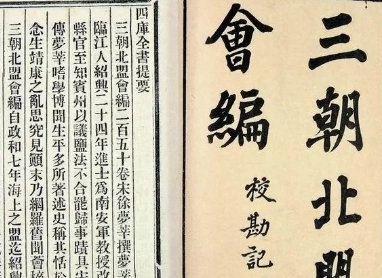 三朝北盟
會編
校勘記
四庫全書提要
三朝北盟會編二百五十卷宋徐夢莘撰夢莘
臨江人紹興二十四年進士為南安軍教授改
縣官至知賓州以議鹽法不合罷歸事蹟具宋
傳夢莘嗜學博聞生平多所著述史稱其恬於
念生靖康之亂思究見顛末乃網羅舊聞會稡
三朝北盟會編自政和七年海上之盟迄紹興